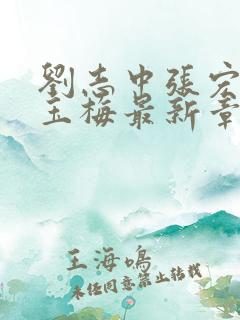 劉志中張宏
玉梅最新章
王海鳴
未经同意禁止转载